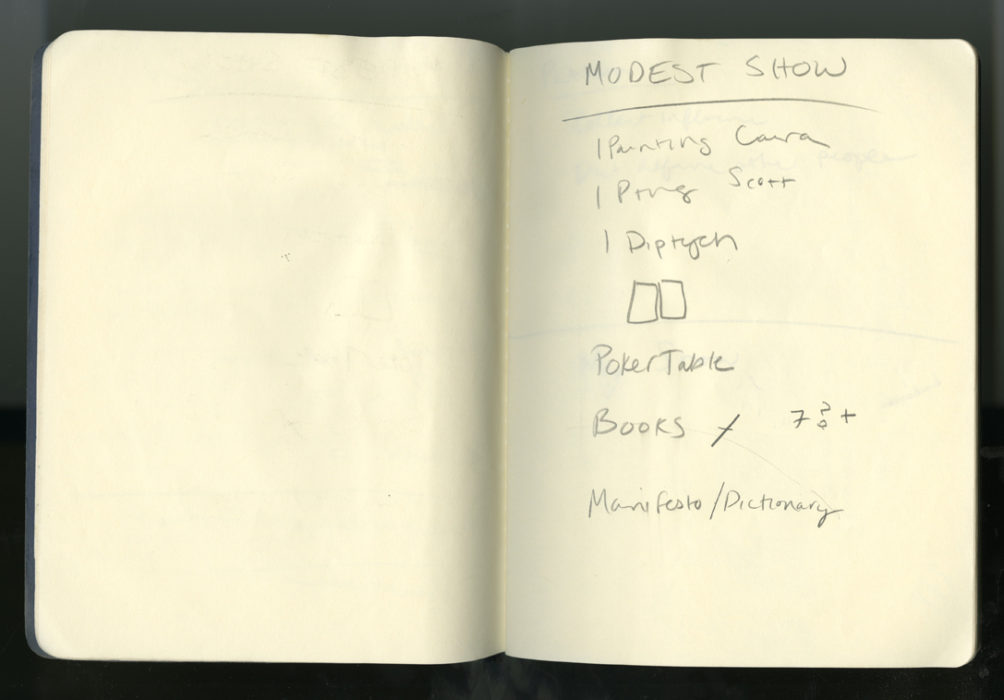 MODEST SHOW
1 Painting Caira
1 Ptng Scott
1 Diptych
Poker Table
Books / 7 ? +
Manifesto/Dictionary